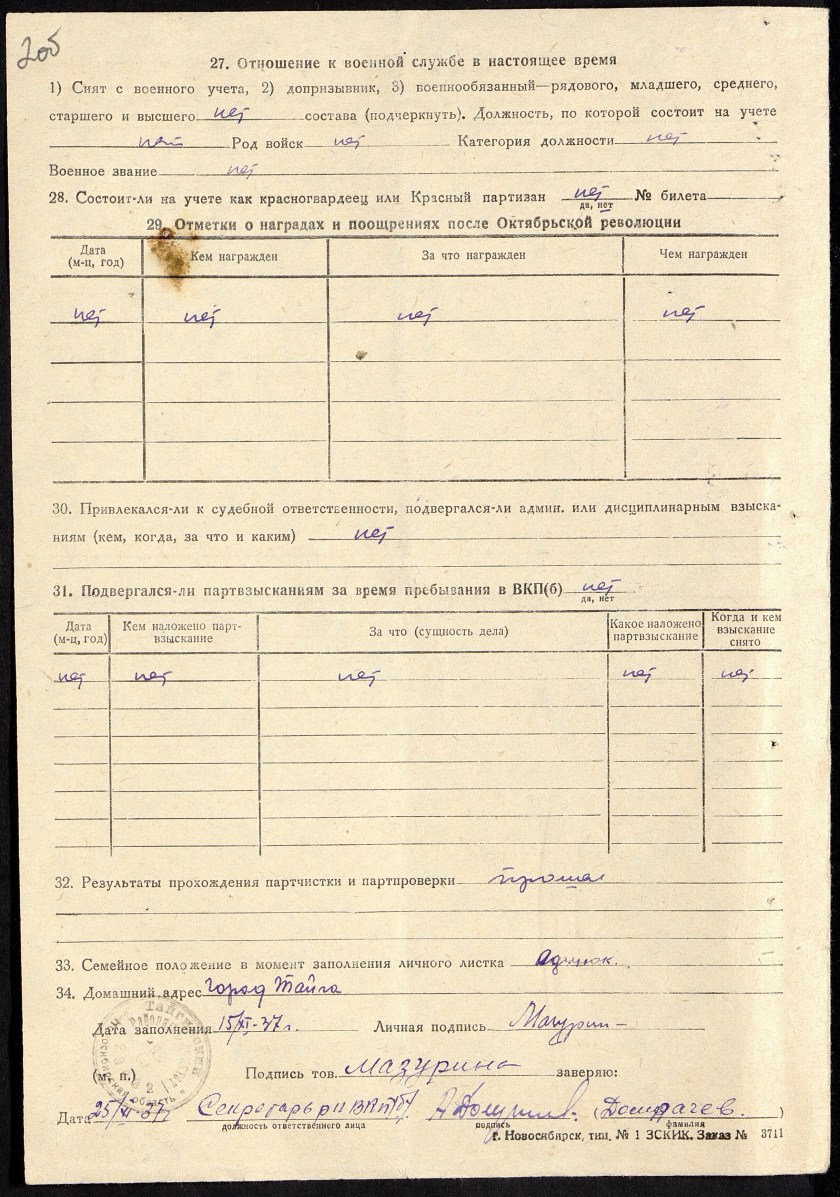 205
27. Отношение к военной службе в настоящее время
1) Снят с военного учета, 2) допризывник, 3) военнообязанный—рядового, младшего, среднего,
старшего и высшего нет состава (подчеркнуть). Должность, по которой состоит на учете
нет Род войск нет Категория должности нет
Военное звание нет
28. Состоит-ли на учете как красногвардеец или Красный партизан нет № билета
да, нет
29. Отметки о наградах и поощрениях после Октябрьской революции
Дата (м-ц, год) Кем награжден За что награжден Чем награжден
нет нет нет нет
30. Привлекался-ли к судебной ответственности, подвергался-ли админ. или дисциплинарным взыска-
ниям (кем, когда, за что и каким) нет
31. Подвергался-ли партвзысканиям за время пребывания в ВКП(б) нет
да, нет
Дата Кем наложено парт- За что (сущность дела) Какое наложено Когда и кем
(м-ц, год) взыскание партвзыскание взыскание
снято
нет нет нет нет нет
32. Результаты прохождения партчистки и партпроверки прошел
33. Семейное положение в момент заполнения личного листка одинок.
34. Домашний адрес город Тайга
Дата заполнения 15/XI-37 г. Личная подпись Мазурин
(м. п.) Подпись тов. Мазурина заверяю:
Дата 25/XI-37 Секретарь рк ВКП(б) ( )
должность ответственного лица подпись фамилия
г. Новосибирск, тип. № 1 ЗСКИК. Заказ № 3711